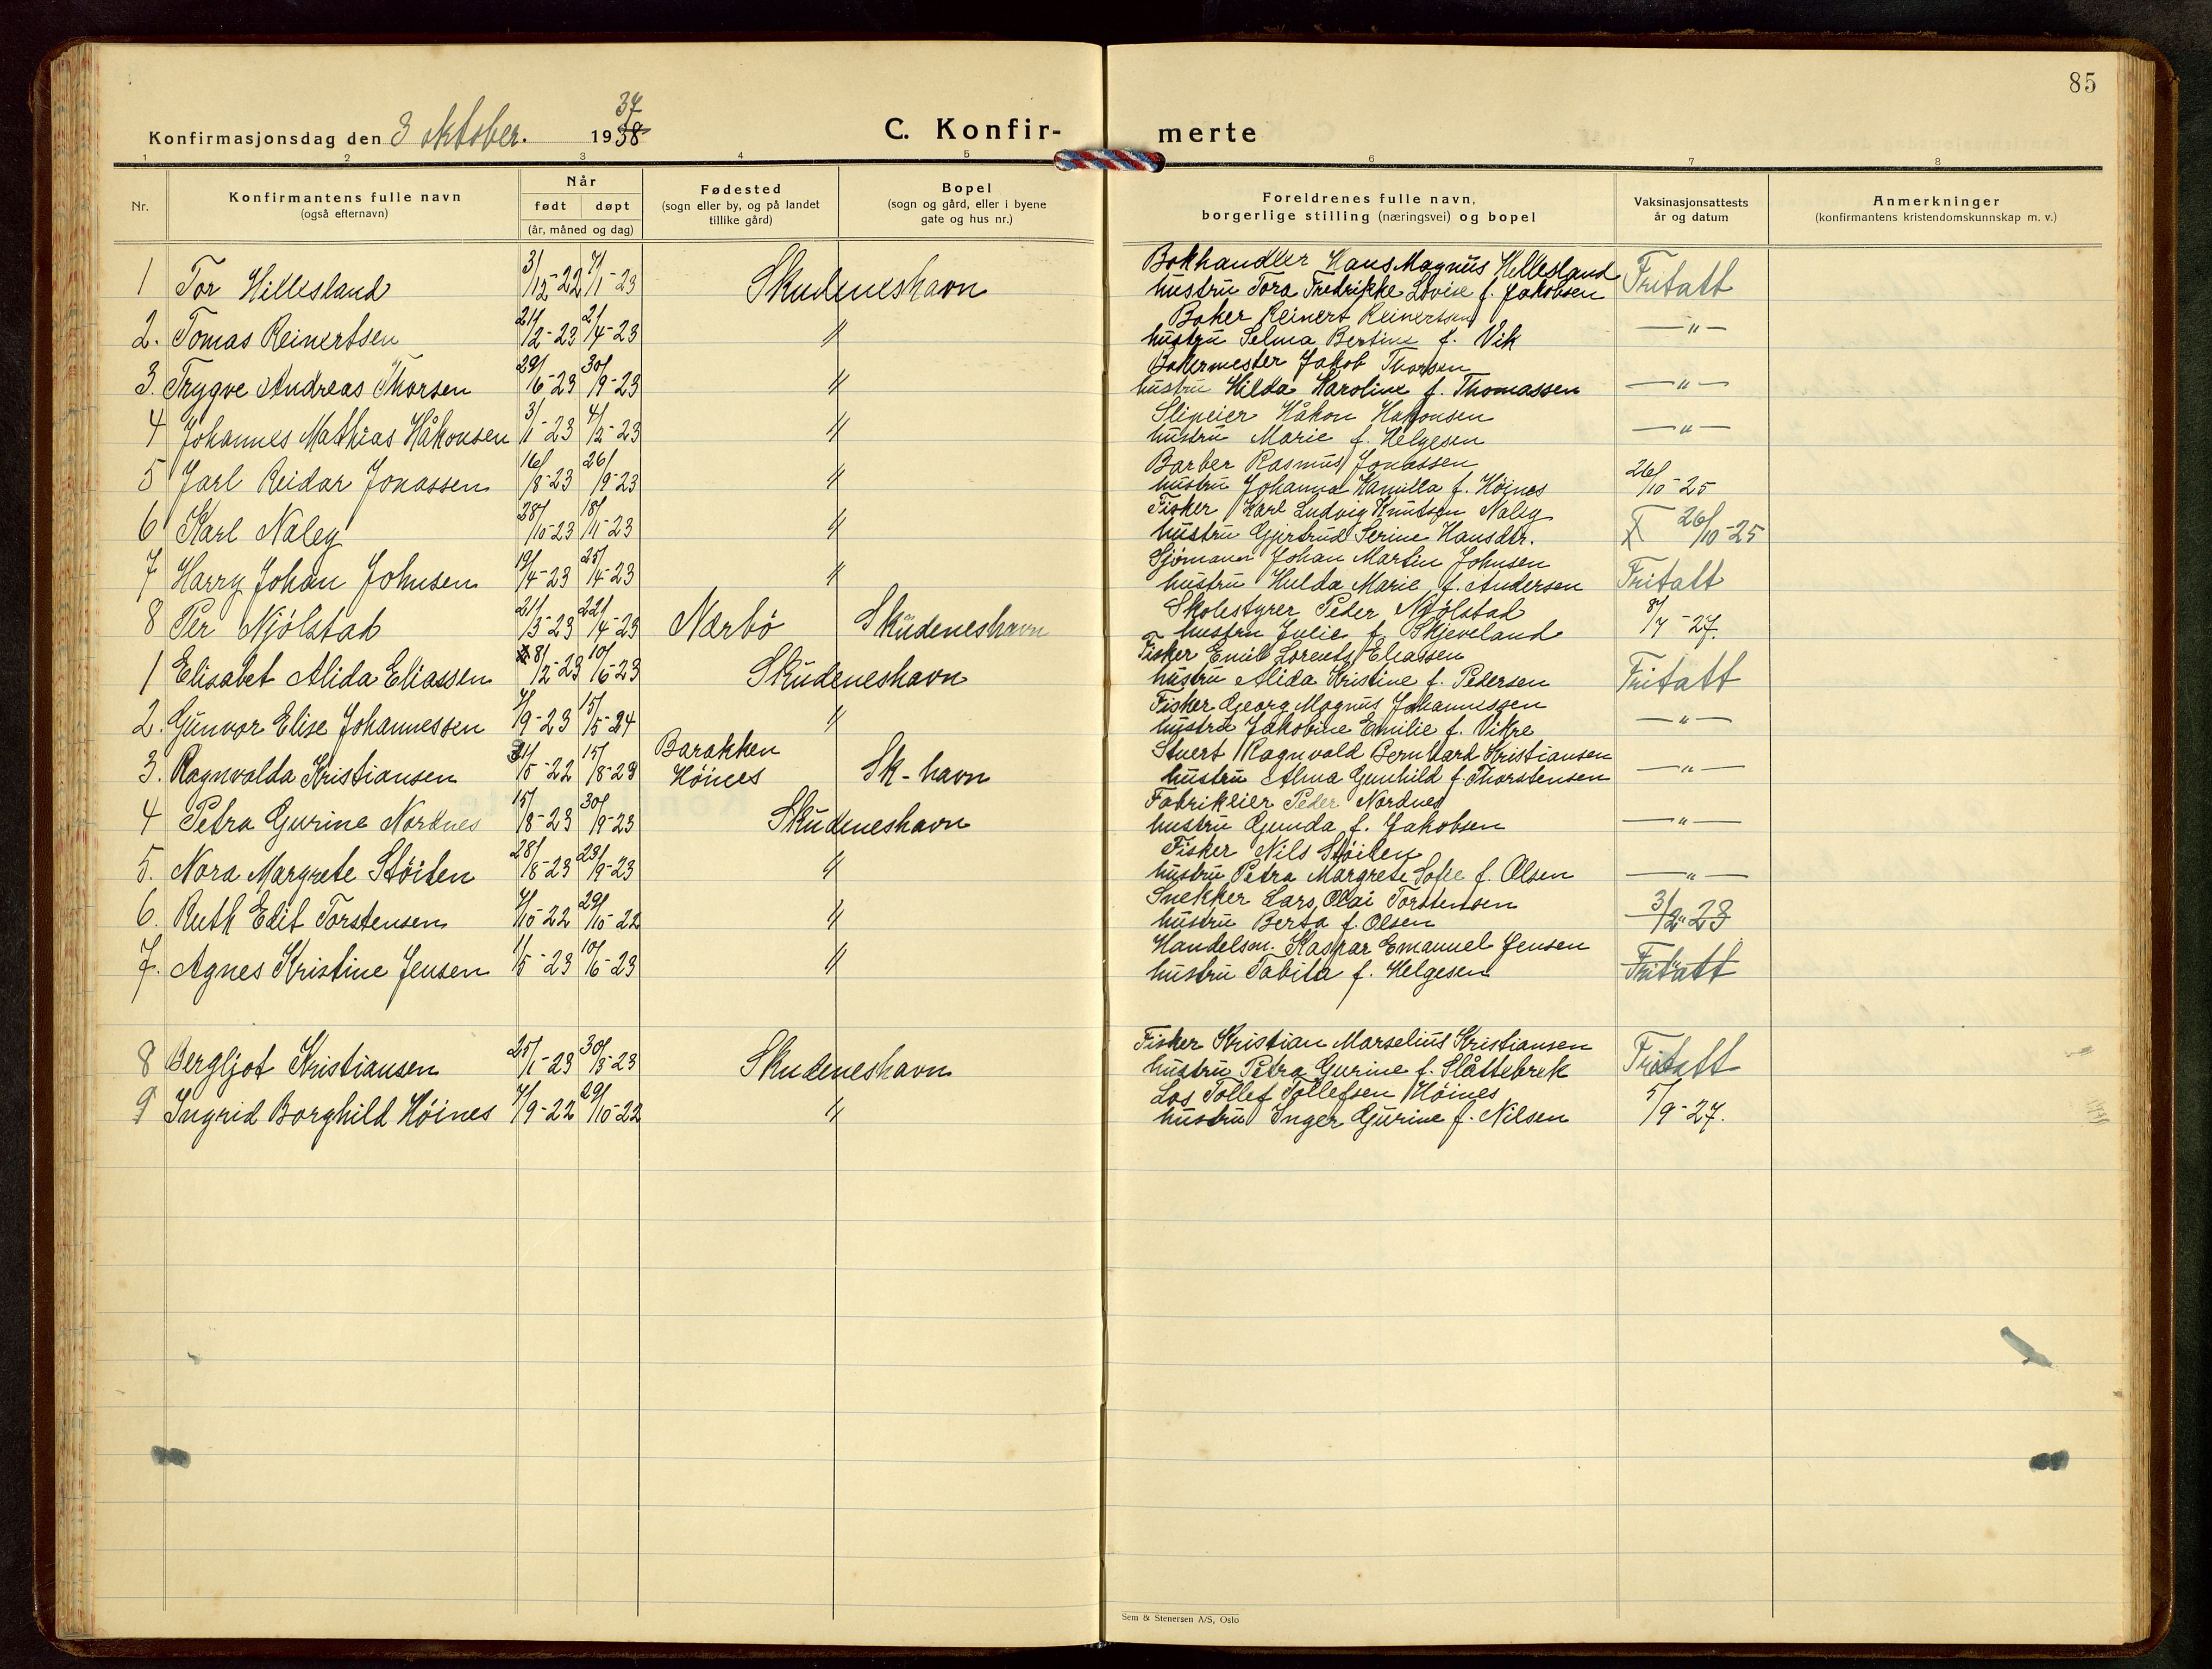 85
Konfirmasjonsdag den 3 oktober. 1938 37
C. Konfir- merte
1 2 3 4 5 6 7 8
Nr.
Konfirmantens fulle navn
(også efternavn)
Når
født døpt
(år, måned og dag)
Fødested
(sogn eller by, og på landet
tillike gård)
Bopel
(sogn og gård, eller i byene
gate og hus nr.)
Foreldrenes fulle navn,
borgerlige stilling (næringsvei) og bopel
Vaksinasjonsattests
år og datum
Anmerkninger
(konfirmantens kristendomskunnskap m. v.)
1 Tor Hillesland 3/12-22 7/1-23 Skudeneshavn
Bokhandler Hans Magnus Hillesland
hustru Tora Fredrikke Lovise f. Jakobsen Fritatt
2. Tomas Reinertsen 21/2-23 2/4-23 "
Baker Reinert Reinertsen
hustru Selma Bertine f. Vik — " —
3. Trygve Andreas Thorsen 29/6-23 30/9-23 "
Bakermester Jakob Thorsen
hustru Hilda Karoline f. Thomassen — " —
4 Johannes Mathias Håkonsen 3/1-23 4/2-23 "
Slipeier Håkon Hakonsen
hustru Marie f. Helgesen — " —
5 Jarl Reidar Jonassen 16/8-23 26/9-23 "
Barber Rasmus Jonassen
hustru Johanna Kamilla f. Høines 26/10-25
6 Karl Naley 28/10-23 18/11-23 "
Fisker Karl Ludvig Knutsen Naley
hustru Gjertrud Serine Hansdtr. 26/10-25
7 Harry Johan Johnsen 19/4-23 25/4-23 "
Sjømann Johan Martin Johnsen
hustru Hulda Marie f. Andersen Fritatt
8 Per Njölstad 21/3-23 22/4-23 Nærbö Skudeneshavn
Skolestyrer Peder Njölstad
hustru Julie f. Skjeveland 8/7-27.
1 Elisabet Alida Eliassen 8/2-23 10/6-23 Skudeneshavn
Fisker Emil Lorents Eliassen
hustru Alida Kristine f. Pedersen Fritatt
2. Gunvor Elise Johannessen 4/9-23 15/5-24 "
Fisker Georg Magnus Johannessen
hustru Jakobine Emilie f. Vikre — " —
3. Ragnvalda Kristiansen 31/5-22 15/8-23 Barakken
Höines Sk-havn
Stuert Ragnvald Bernhard Kristiansen
hustru Alma Gunhild f. Thorstensen — " —
4 Petra Gurine Nordnes 15/8-23 30/9-23 Skudeneshavn
Fabrikeier Peder Nordnes
hustru Gunda f. Jakobsen — " —
5. Nora Margrete Stöiten 28/8-23 23/9-23 "
Fisker Nils Stöiten
hustru Petra Margrete Sofie f. Olsen — " —
6. Ruth Edit Torstensen 4/10-22 29/10-22 "
Snekker Lars Olai Torstensen
hustru Berta f. Olsen 3/2-28
7. Agnes Kristine Jensen 1/5-23 10/6-23 "
Handelsm. Kaspar Emanuel Jensen
hustru Tabita f. Helgesen Fritatt
8 Bergljot Kristiansen 25/1-23 30/3-23 Skudeneshavn
Fisker Kristian Marselius Kristiansen
hustru Petra Gurine f. Slåttebrek Fritatt
9 Ingrid Borghild Höines 7/9-22 29/10-22 "
Los Tollef Tollefsen Höines
hustru Inger Gurine f. Nilsen 5/9-27.
Sem & Stenersen A/S, Oslo